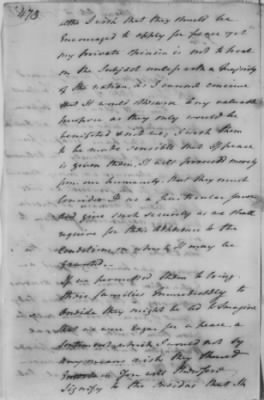 473
altho I wish that they should be
encouraged to apply for peace yet
my private opinion is not to treat
on the Subject unless with a majority
of the nation, as I cannot conceive
that it would answer any valuable
purpose as they only would be
benefited I wish them
to be made sensible that if peace
is given them, it will proceed merely
from our humanity, that they must
consider it as a particular favour
and give such security as we shall
require for their adherence to the
Conditions on which it may be
granted.
If we permitted them to bring
their families immediately to
they might be led to imagine
that we were eager for a peace, a
I would not by
any means wish they should
You will therefore
Signify to the that the